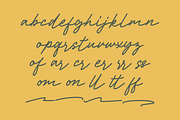 abcdefghijklmn
opqrstuvwxyz
of ar cr er rr ss
om on ll tt ff